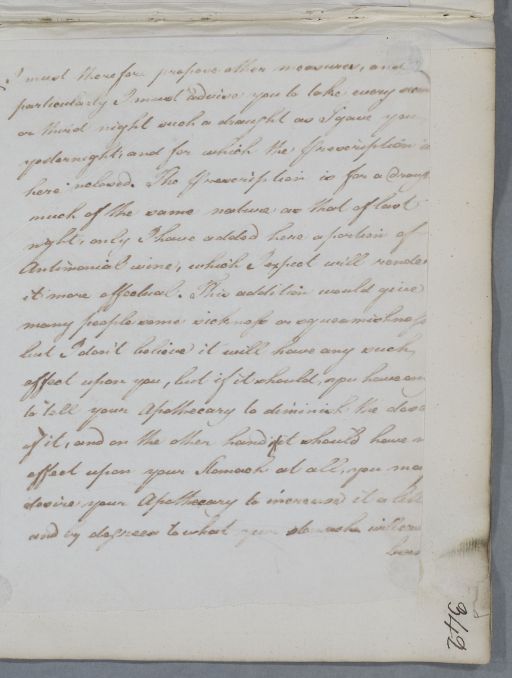 I must therefor propose other measures, and
particularly I must advise you to take every
or third night such a draught as I gave you
yesternight, and for which the Prescription is
here inclosed. The Prescription is for a draught
much of the same nature as that of last
night, only I have added here a portion of
Antimonial wine, which I expect will render
it more effectual. This addition would give
many people some sickness or squeamishness
but I don't believe it will have any such
effect upon you, but if it should, you have only
to tell your Apothecary to diminish the dose
of it, and on the other hand if it should have n
effect upon your Stomach at all, you may
desire your Apothecary to increase it a little
and by degrees to what your stomach will easily
bear
342